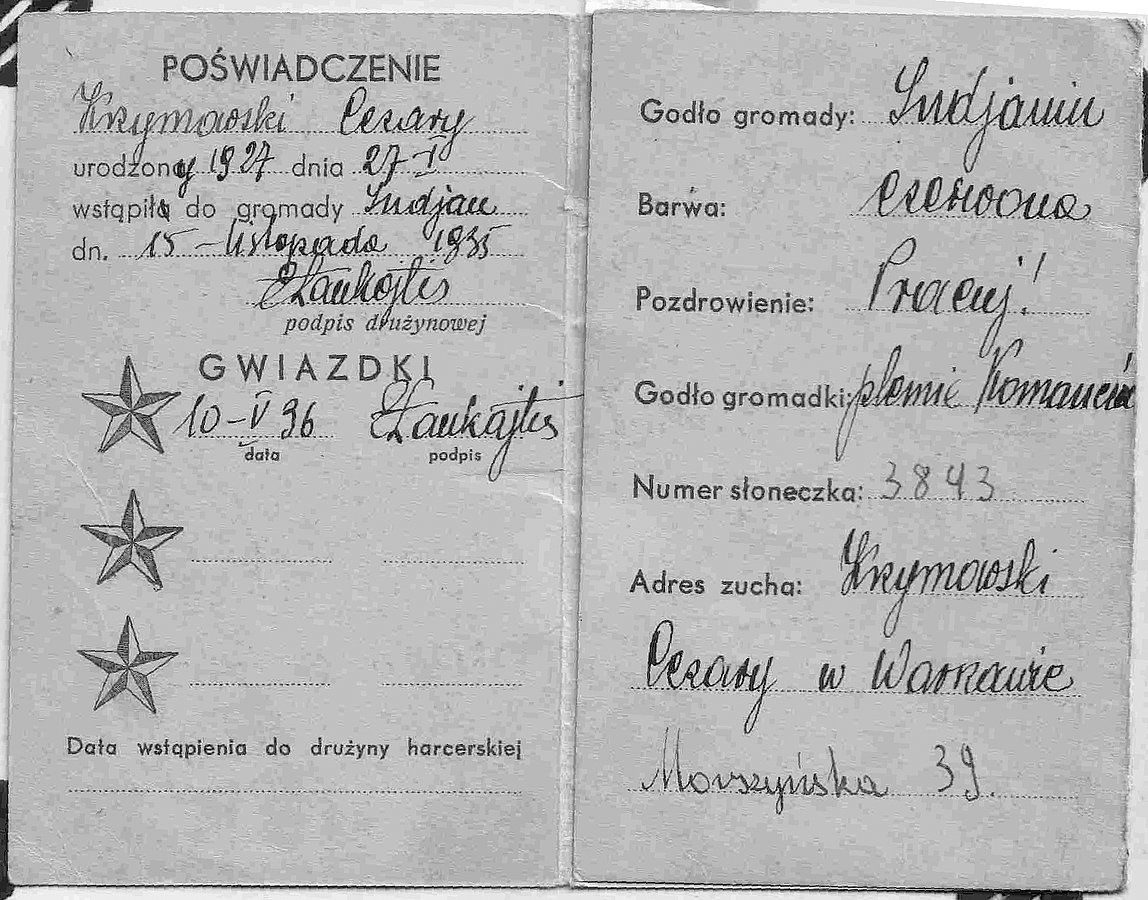 POŚWIADCZENIE
Krzymowski Cezary
urodzony 1927 dnia 27-I
wstąpiłą do gromady Indjan
dn. 15-listopada 1935
ZLaukajtis
podpis drużynowej
GWIAZDKI
10-V 36 ZLaukajtis
data podpis
Data wstąpienia do drużyny harcerskiej
Godło gromady: Indjanin
Barwa: czerwona
Pozdrowienie: Pracuj!
Godło gromadki: plemię Komancza
Numer słoneczka: 3843
Adres zucha: Krzymowski
Cezary w Warszawie
Morszyńska 39.